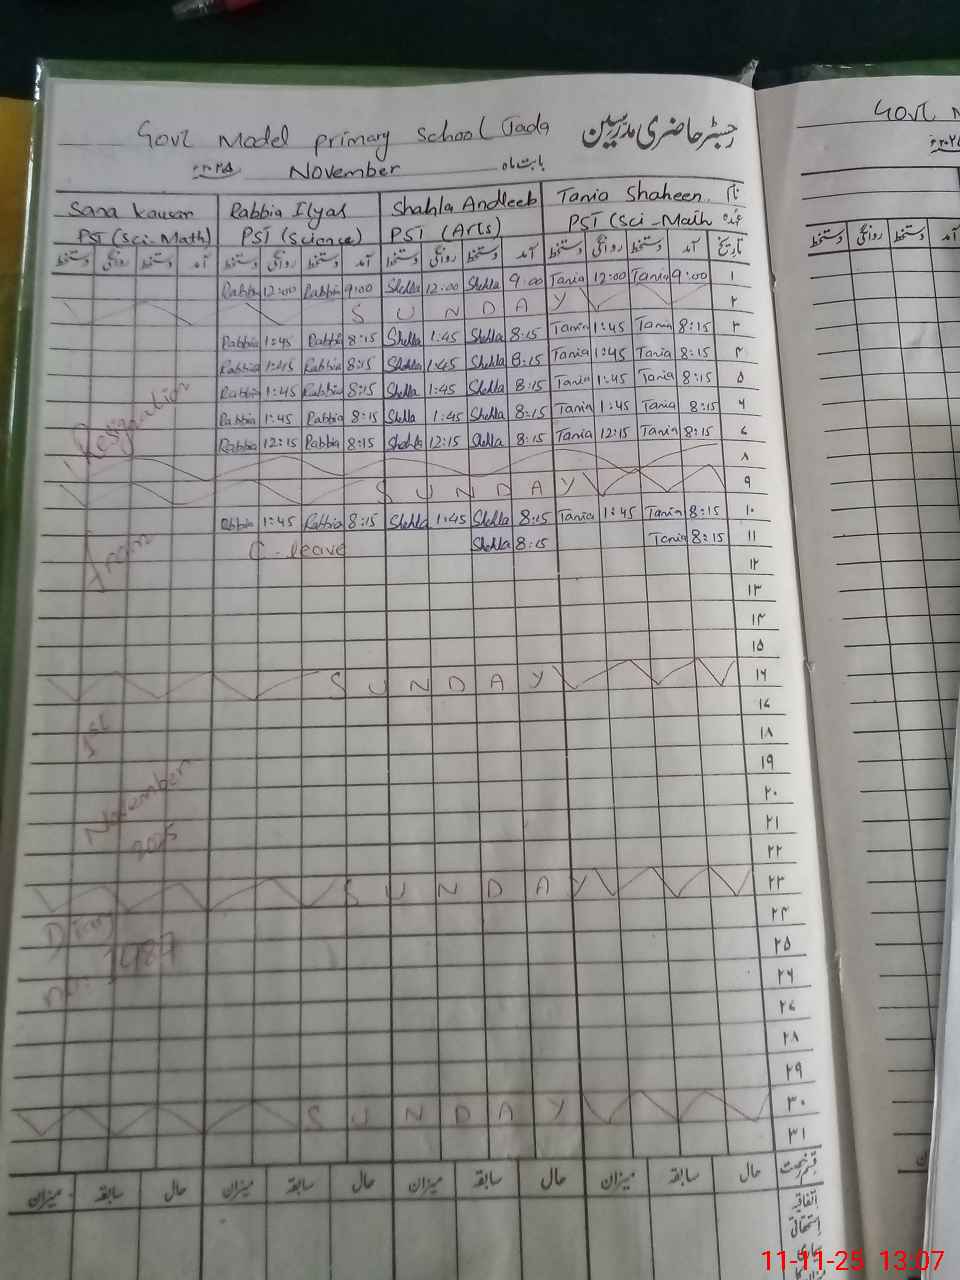 Govt Model primary School Jada رجسٹر حاضری مدرسین
۲۰۲۵ء November بابت ماہ
Sana kausar Rabbia Ilyas Shahla Andleeb Tania Shaheen. نام
PST (Sci-Math) PST (Science) PST (Arts) PST (Sci-Math عہدہ
دستخط روانگی دستخط آمد دستخط روانگی دستخط آمد دستخط روانگی دستخط آمد دستخط روانگی دستخط آمد تاریخ
Rabbia 12:00 Rabbia 9:00 Shella 12:00 Shella 9:00 Tania 12:00 Tania 9:00 ۱
S U N D A Y ۲
Rabbia 1:45 Rabbia 8:15 Shella 1:45 Shella 8:15 Tania 1:45 Tania 8:15 ۳
Rabbia 1:45 Rabbia 8:15 Shella 1:45 Shella 8:15 Tania 1:45 Tania 8:15 ۴
Rabbia 1:45 Rabbia 8:15 Shella 1:45 Shella 8:15 Tania 1:45 Tania 8:15 ۵
Rabbia 1:45 Rabbia 8:15 Shella 1:45 Shella 8:15 Tania 1:45 Tania 8:15 ۶
Rabbia 12:15 Rabbia 8:15 Shahla 12:15 Shella 8:15 Tania 12:15 Tania 8:15 ۷
۸
S U N D A Y ۹
Rabbia 1:45 Rabbia 8:15 Shella 1:45 Shella 8:15 Tania 1:45 Tania 8:15 ۱۰
C-leave Shella 8:15 Tania 8:15 ۱۱
۱۲
۱۳
۱۴
۱۵
S U N D A Y ۱۶
۱۷
۱۸
۱۹
۲۰
۲۱
۲۲
S U N D A Y ۲۳
۲۴
۲۵
۲۶
۲۷
۲۸
۲۹
S U N D A Y ۳۰
۳۱
میزان سابقہ حال میزان سابقہ حال میزان سابقہ حال میزان سابقہ حال قسم رخصت
اتفاقیہ
استحقاقی
بیماری
Resignation
From
1st
November
2025
Diary
no: 1487
Govt M
۲۰۲۵ء
دستخط روانگی دستخط آمد
11-11-25 13:07